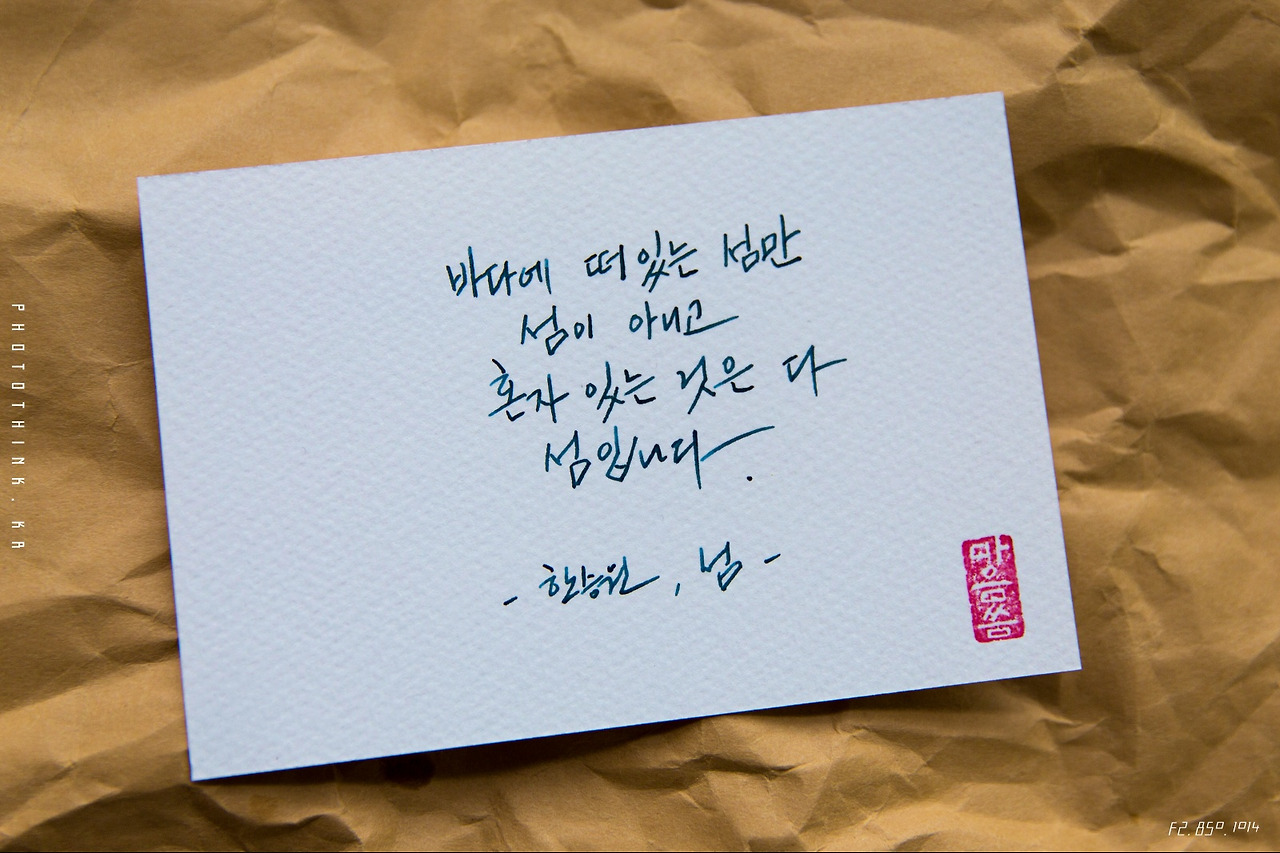 바다에 떠 있는 섬만
섬이 아니고
혼자 있는 것은 다
섬입니다.
- 한승원, 섬 -
PHOTOTHINK.KR
F2.850.1014